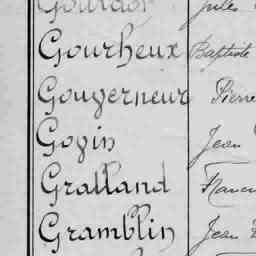 Gourdor Jules
Gourheux Baptiste
Gouverneur Pierre
Goyin Jean
Gralland
Gramblin Jean